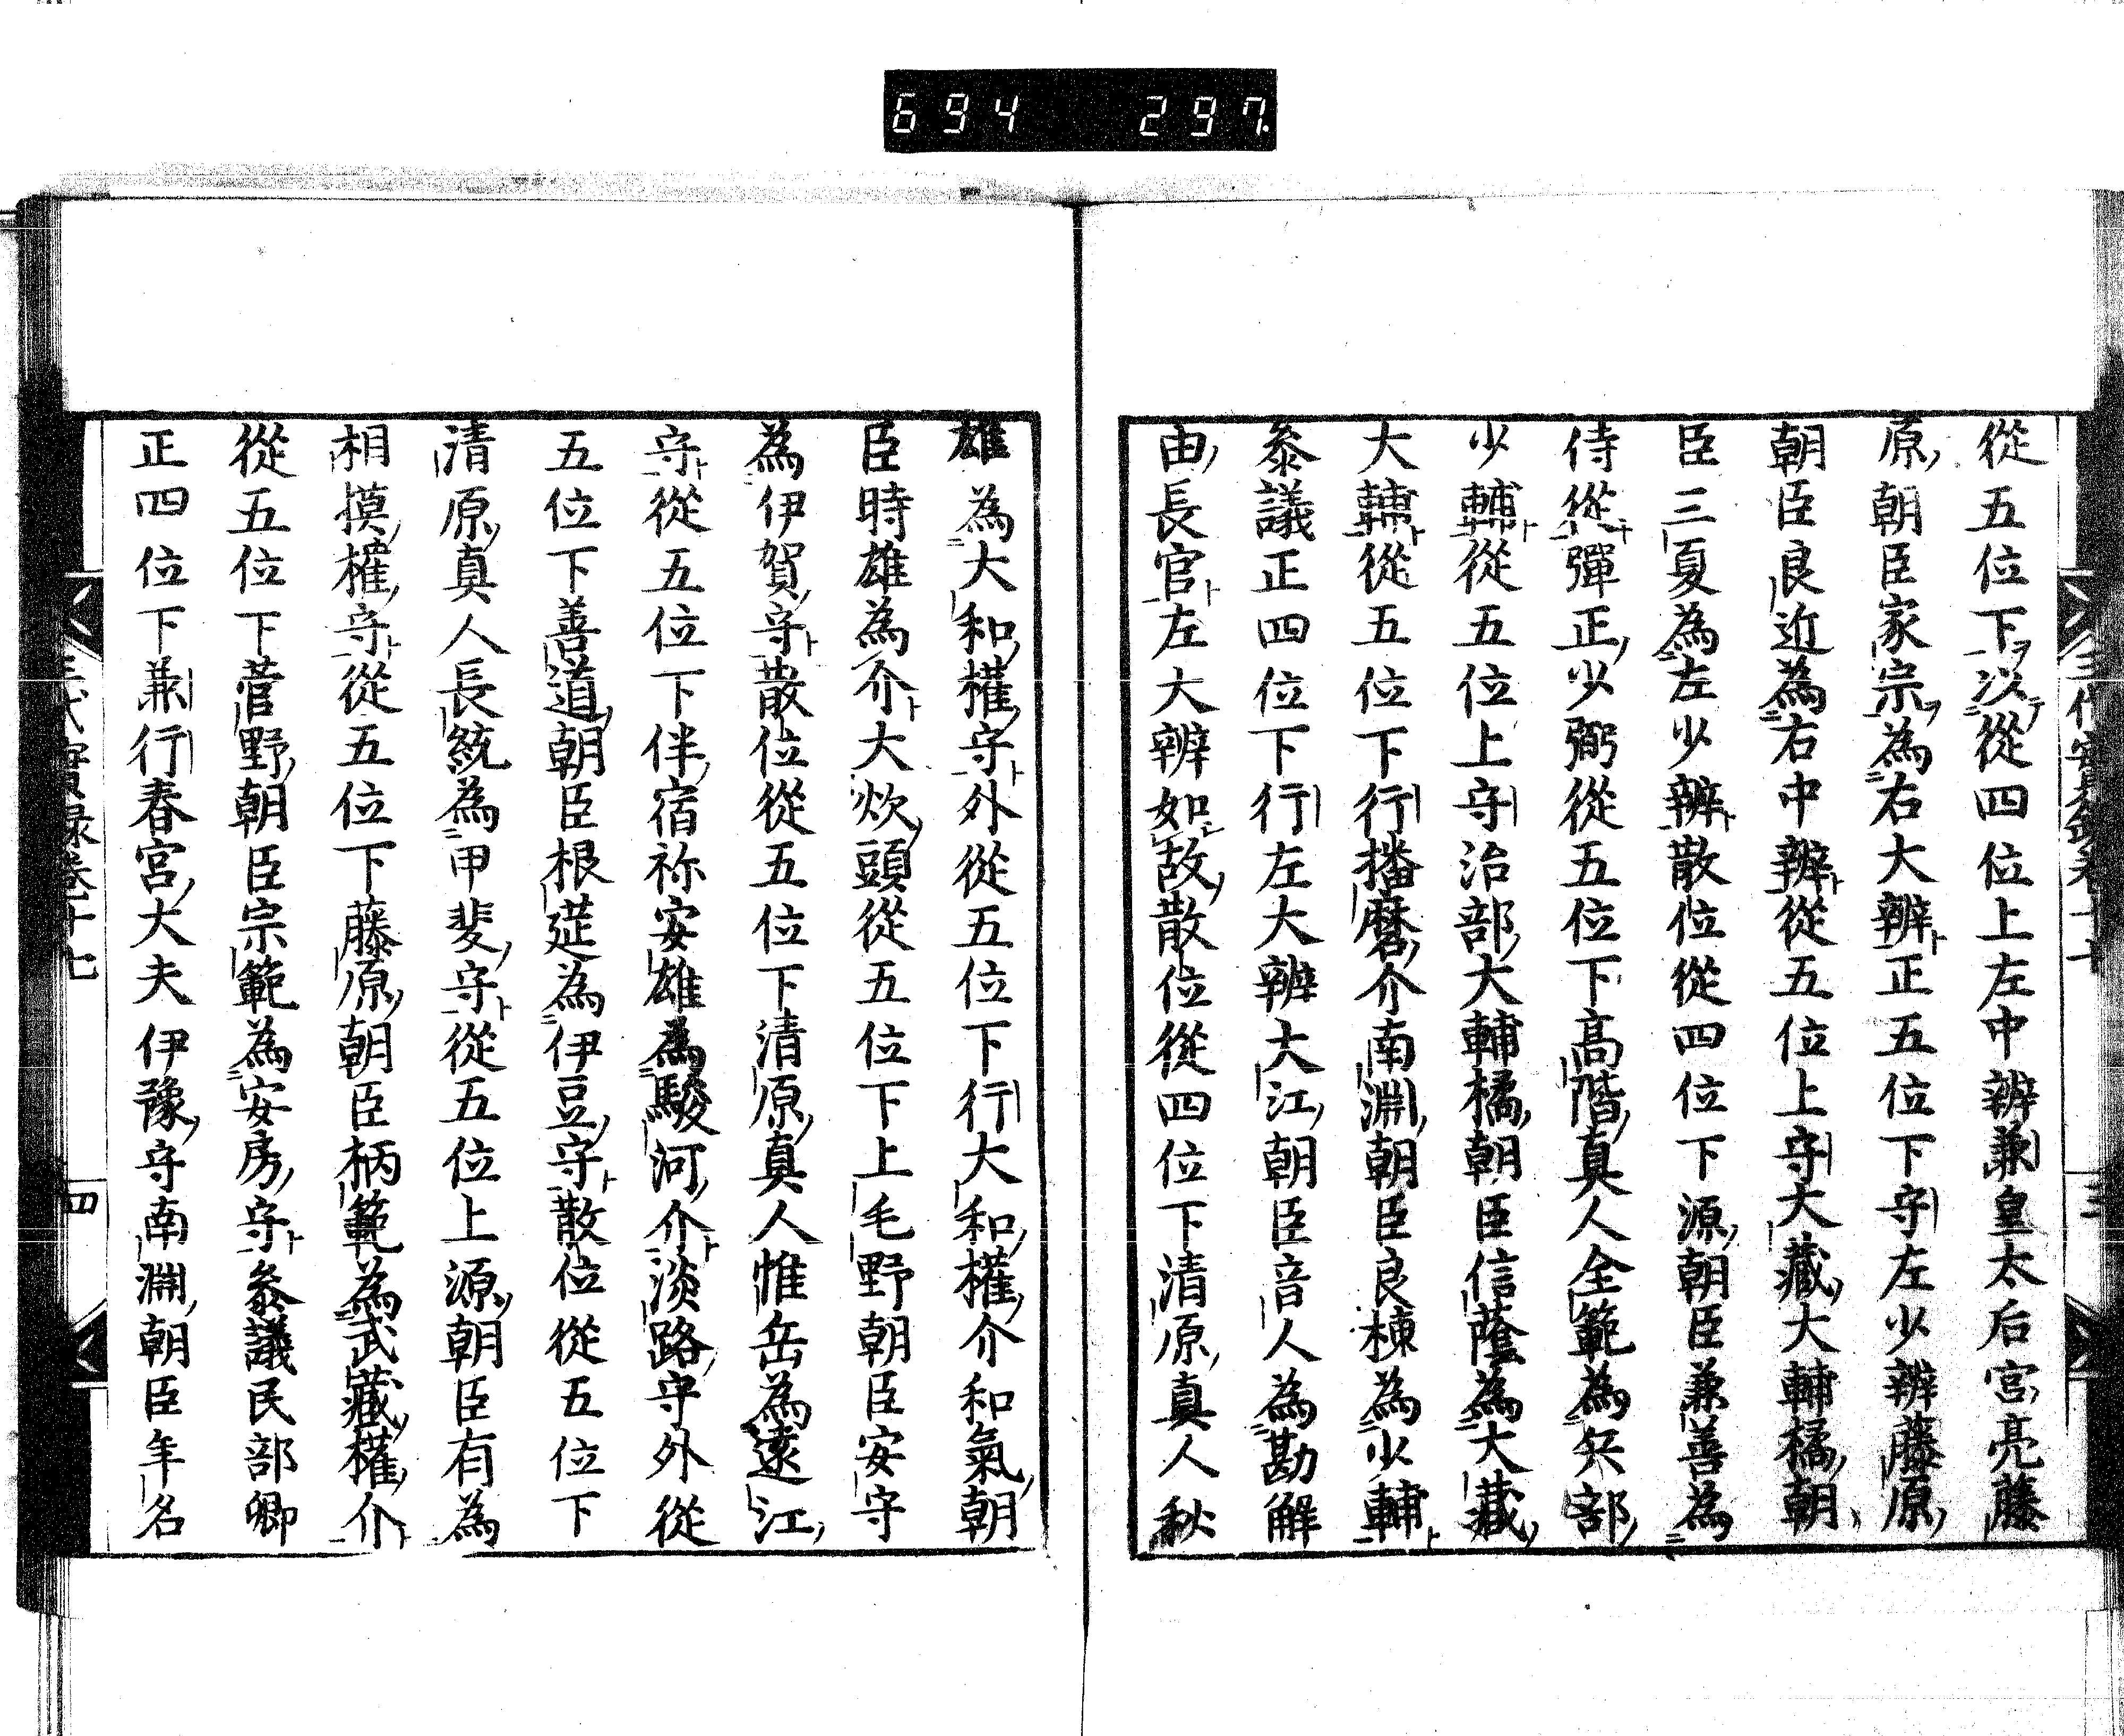 694 297
從五位下以從四位上左中辨兼皇太后宮亮藤
原朝臣家宗為右大辨正五位下守左少辨藤原
朝臣良近為右中辨從五位上守大藏大輔橘朝
臣三夏為左少辨散位從四位下源朝臣兼善為
侍從彈正少弼從五位下高階真人全範為兵部
少輔從五位上守治部大輔橘朝臣信蔭為大藏
大輔從五位下行播磨介南淵朝臣良棟為少輔
叅議正四位下行左大辨大江朝臣音人為勘解
由長官左大辨如故散位從四位下清原真人秋
雄為大和權守外從五位下行大和權介和氣朝
臣時雄為介大炊頭從五位下上毛野朝臣安守
為伊賀守散位從五位下清原真人惟岳為遠江
守從五位下伴宿祢安雄為駿河介淡路守外從
五位下善道朝臣根莚為伊豆守散位從五位下
清原真人長統為甲斐守從五位上源朝臣有為
相摸權守從五位下藤原朝臣柄範為武藏權介
從五位下菅野朝臣宗範為安房守叅議民部卿
正四位下兼行春宮大夫伊豫守南淵朝臣年名
三代實錄卷十七
四